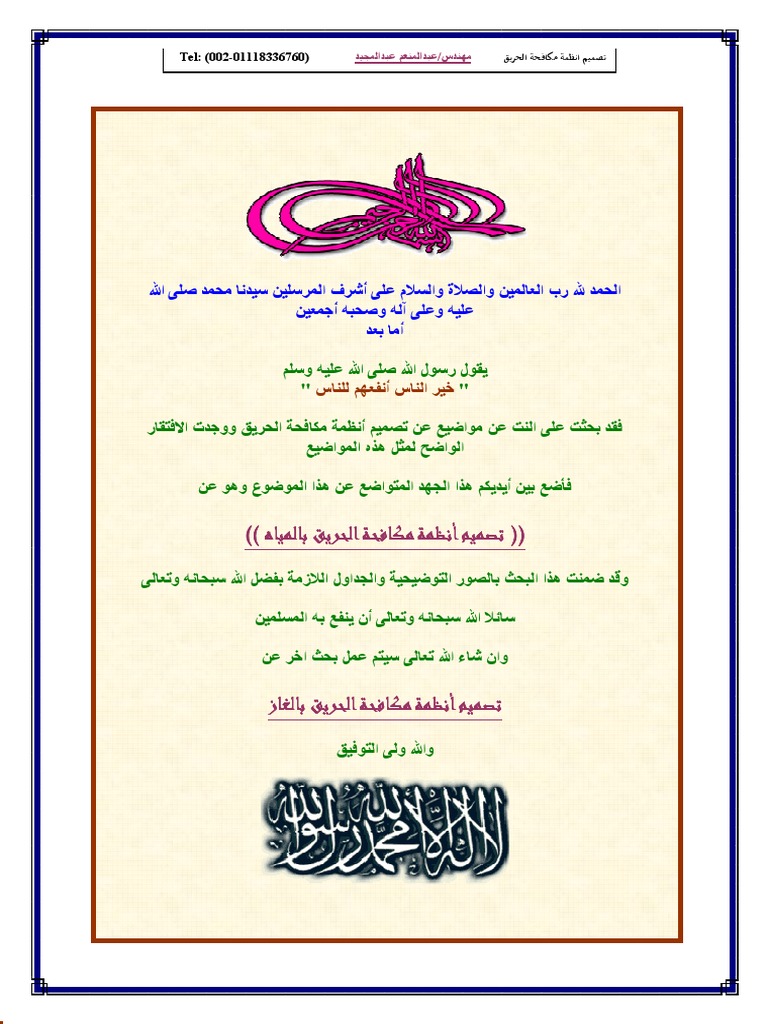 تصميم انظمة مكافحة الحريق مهندس/عبدالمنعم عبدالمجيد Tel: (002-01118336760)
بسم الله الرحمن الرحيم
الحمد لله رب العالمين والصلاة والسلام على أشرف المرسلين سيدنا محمد صلى الله
عليه وعلى آله وصحبه أجمعين
أما بعد
يقول رسول الله صلى الله عليه وسلم
" خير الناس أنفعهم للناس "
فقد بحثت على النت عن مواضيع عن تصميم أنظمة مكافحة الحريق ووجدت الافتقار
الواضح لمثل هذه المواضيع
فأضع بين أيديكم هذا الجهد المتواضع عن هذا الموضوع وهو عن
(( تصميم أنظمة مكافحة الحريق بالمياه ))
وقد ضمنت هذا البحث بالصور التوضيحية والجداول اللازمة بفضل الله سبحانه وتعالى
سائلا الله سبحانه وتعالى أن ينفع به المسلمين
وان شاء الله تعالى سيتم عمل بحث اخر عن
تصميم أنظمة مكافحة الحريق بالغاز
والله ولى التوفيق
لا إله إلا الله محمد رسول الله